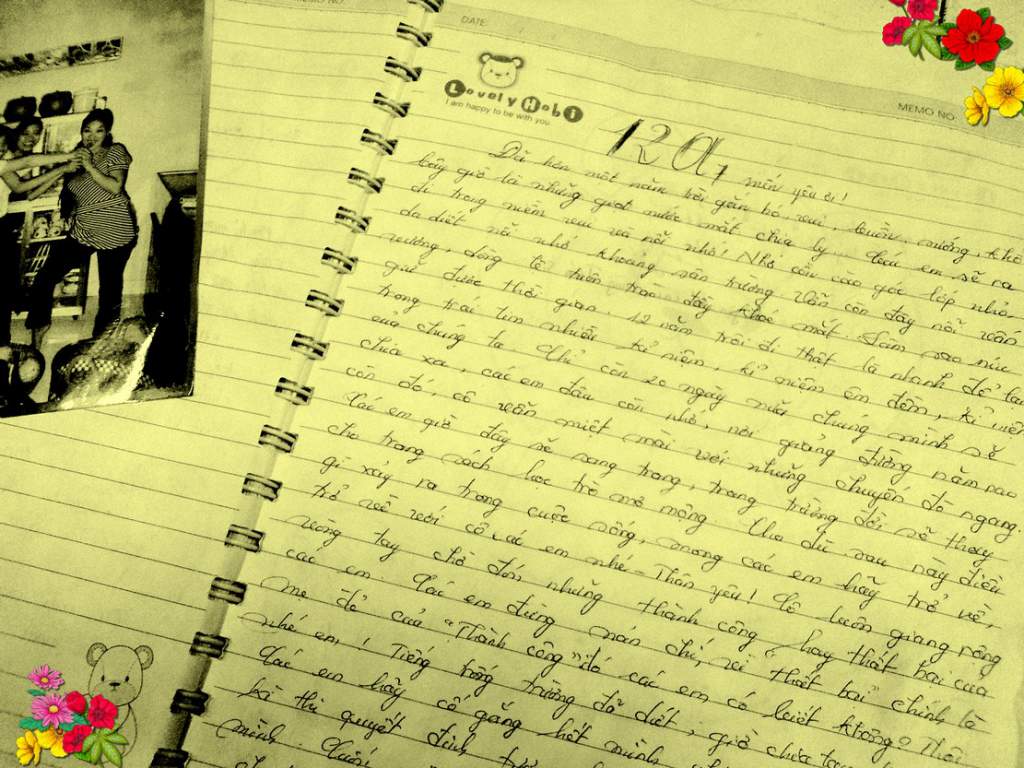 MEMO NO.
DATE:
Lovely Hobi
I am happy to be with you
MEMO NO
12A1 mến yêu ơi!
Đã hơn một năm rồi gắn bó, vui, buồn, sướng, khổ
bây giờ là những giọt nước mắt chia ly các em sẽ ra
đi trong niềm vui và nỗi nhớ! Nhớ còn vào góc lớp nhỏ,
da diết nỗi nhớ khoảng sân trường vẫn còn đây nỗi vấn
vương, dòng tê tuôn trào đầy khóe mắt. Làm sao níu
giữ được thời gian. 12 năm trôi đi thật là nhanh để lại
trong trái tim nhiều kỉ niệm, kỉ niệm êm đềm, kỉ niệm
của chúng ta. Chỉ còn 20 ngày nữa chúng mình sẽ
chia xa, các em đâu còn nhỏ, nơi quảng đường năm nao
còn đó, cô vẫn miệt mài với những chuyến đò ngang.
Các em giờ đây sẽ sang trang, trang trường đời sẽ thay
cho trang sách học trò mơ mộng. Cho dù sau này điều
gì xảy ra trong cuộc sống, mong các em hãy trở về,
trở về với cô các em nhé - Thân yêu! Cô luôn giang rộng
vòng tay chờ đón những thành công hay thất bại của
các em. Các em đừng nản chí, vì "thất bại" chính là
mẹ đẻ của "Thành công" đó các em, có biết không? Thôi
nhé em! Tiếng trống trường đã điểm, giờ chia tay
Các em hãy cố gắng hết mình
kì thi quyết định,
mình. Cuối